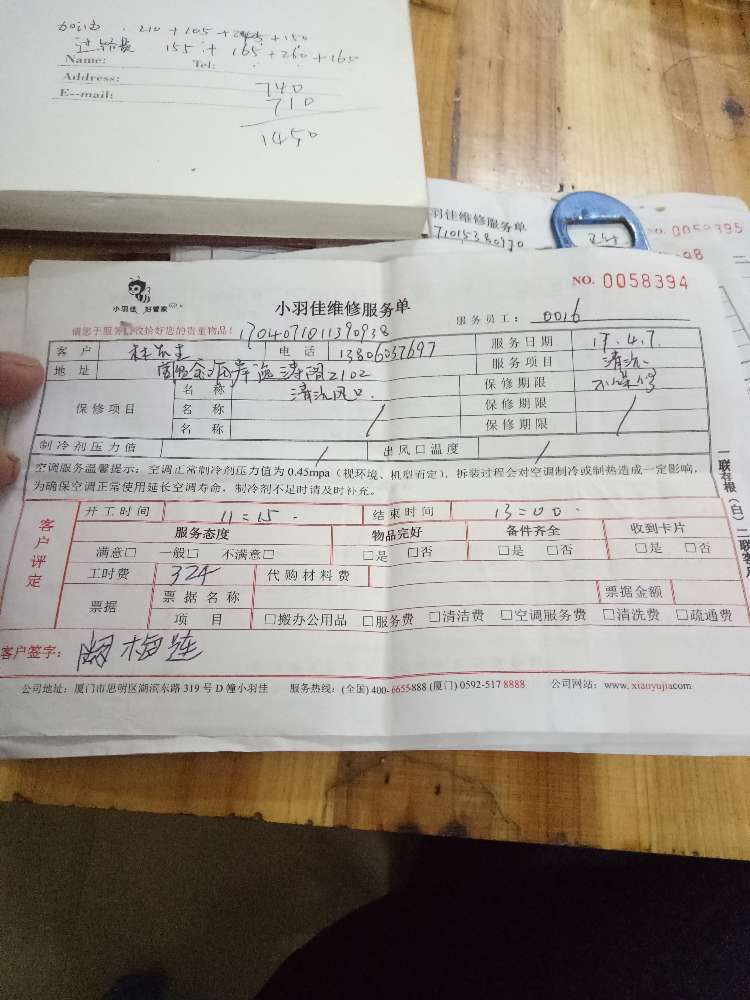 210 + 105 + + 150
155 + 165 + 260 + 160
Name: Tel:
Address:
E--mail:
740
710
1450
羽佳维修服务单
NO. 0059395
小羽佳 好管家
小羽佳维修服务单
NO. 0058394
请您于服务 收拾好您的贵重物品!
服务员工: 0016
客户 林 电话 13806037697 服务日期 17.4.7.
地址 2102 服务项目 清洗.
保修项目 名称 清洗风口. 保修期限 不保修
名称 / 保修期限 /
名称 保修期限
制冷剂压力值 / 出风口温度 /
空调服务温馨提示:空调正常制冷剂压力值为 0.45mpa(视环境、机型而定),拆装过程会对空调制冷或制热造成一定影响,
为确保空调正常使用延长空调寿命,制冷剂不足时请及时补充。
一联存根(白) 二联客户
客户评定
开工时间 11=15. 结束时间 13=00.
服务态度 物品完好 备件齐全 收到卡片
满意□ 一般□ 不满意□ □是 □否 □是 □否 □是 □否
工时费 324 代购材料费
票据 票据名称 票据金额
项目 □搬办公用品 □服务费 □清洁费 □空调服务费 □清洗费 □疏通费
客户签字:
公司地址:厦门市思明区湖滨东路 319 号 D 幢小羽佳 服务热线:(全国)400-6655888 (厦门) 0592-517 8888 公司网站:www.xiaoyujia.com